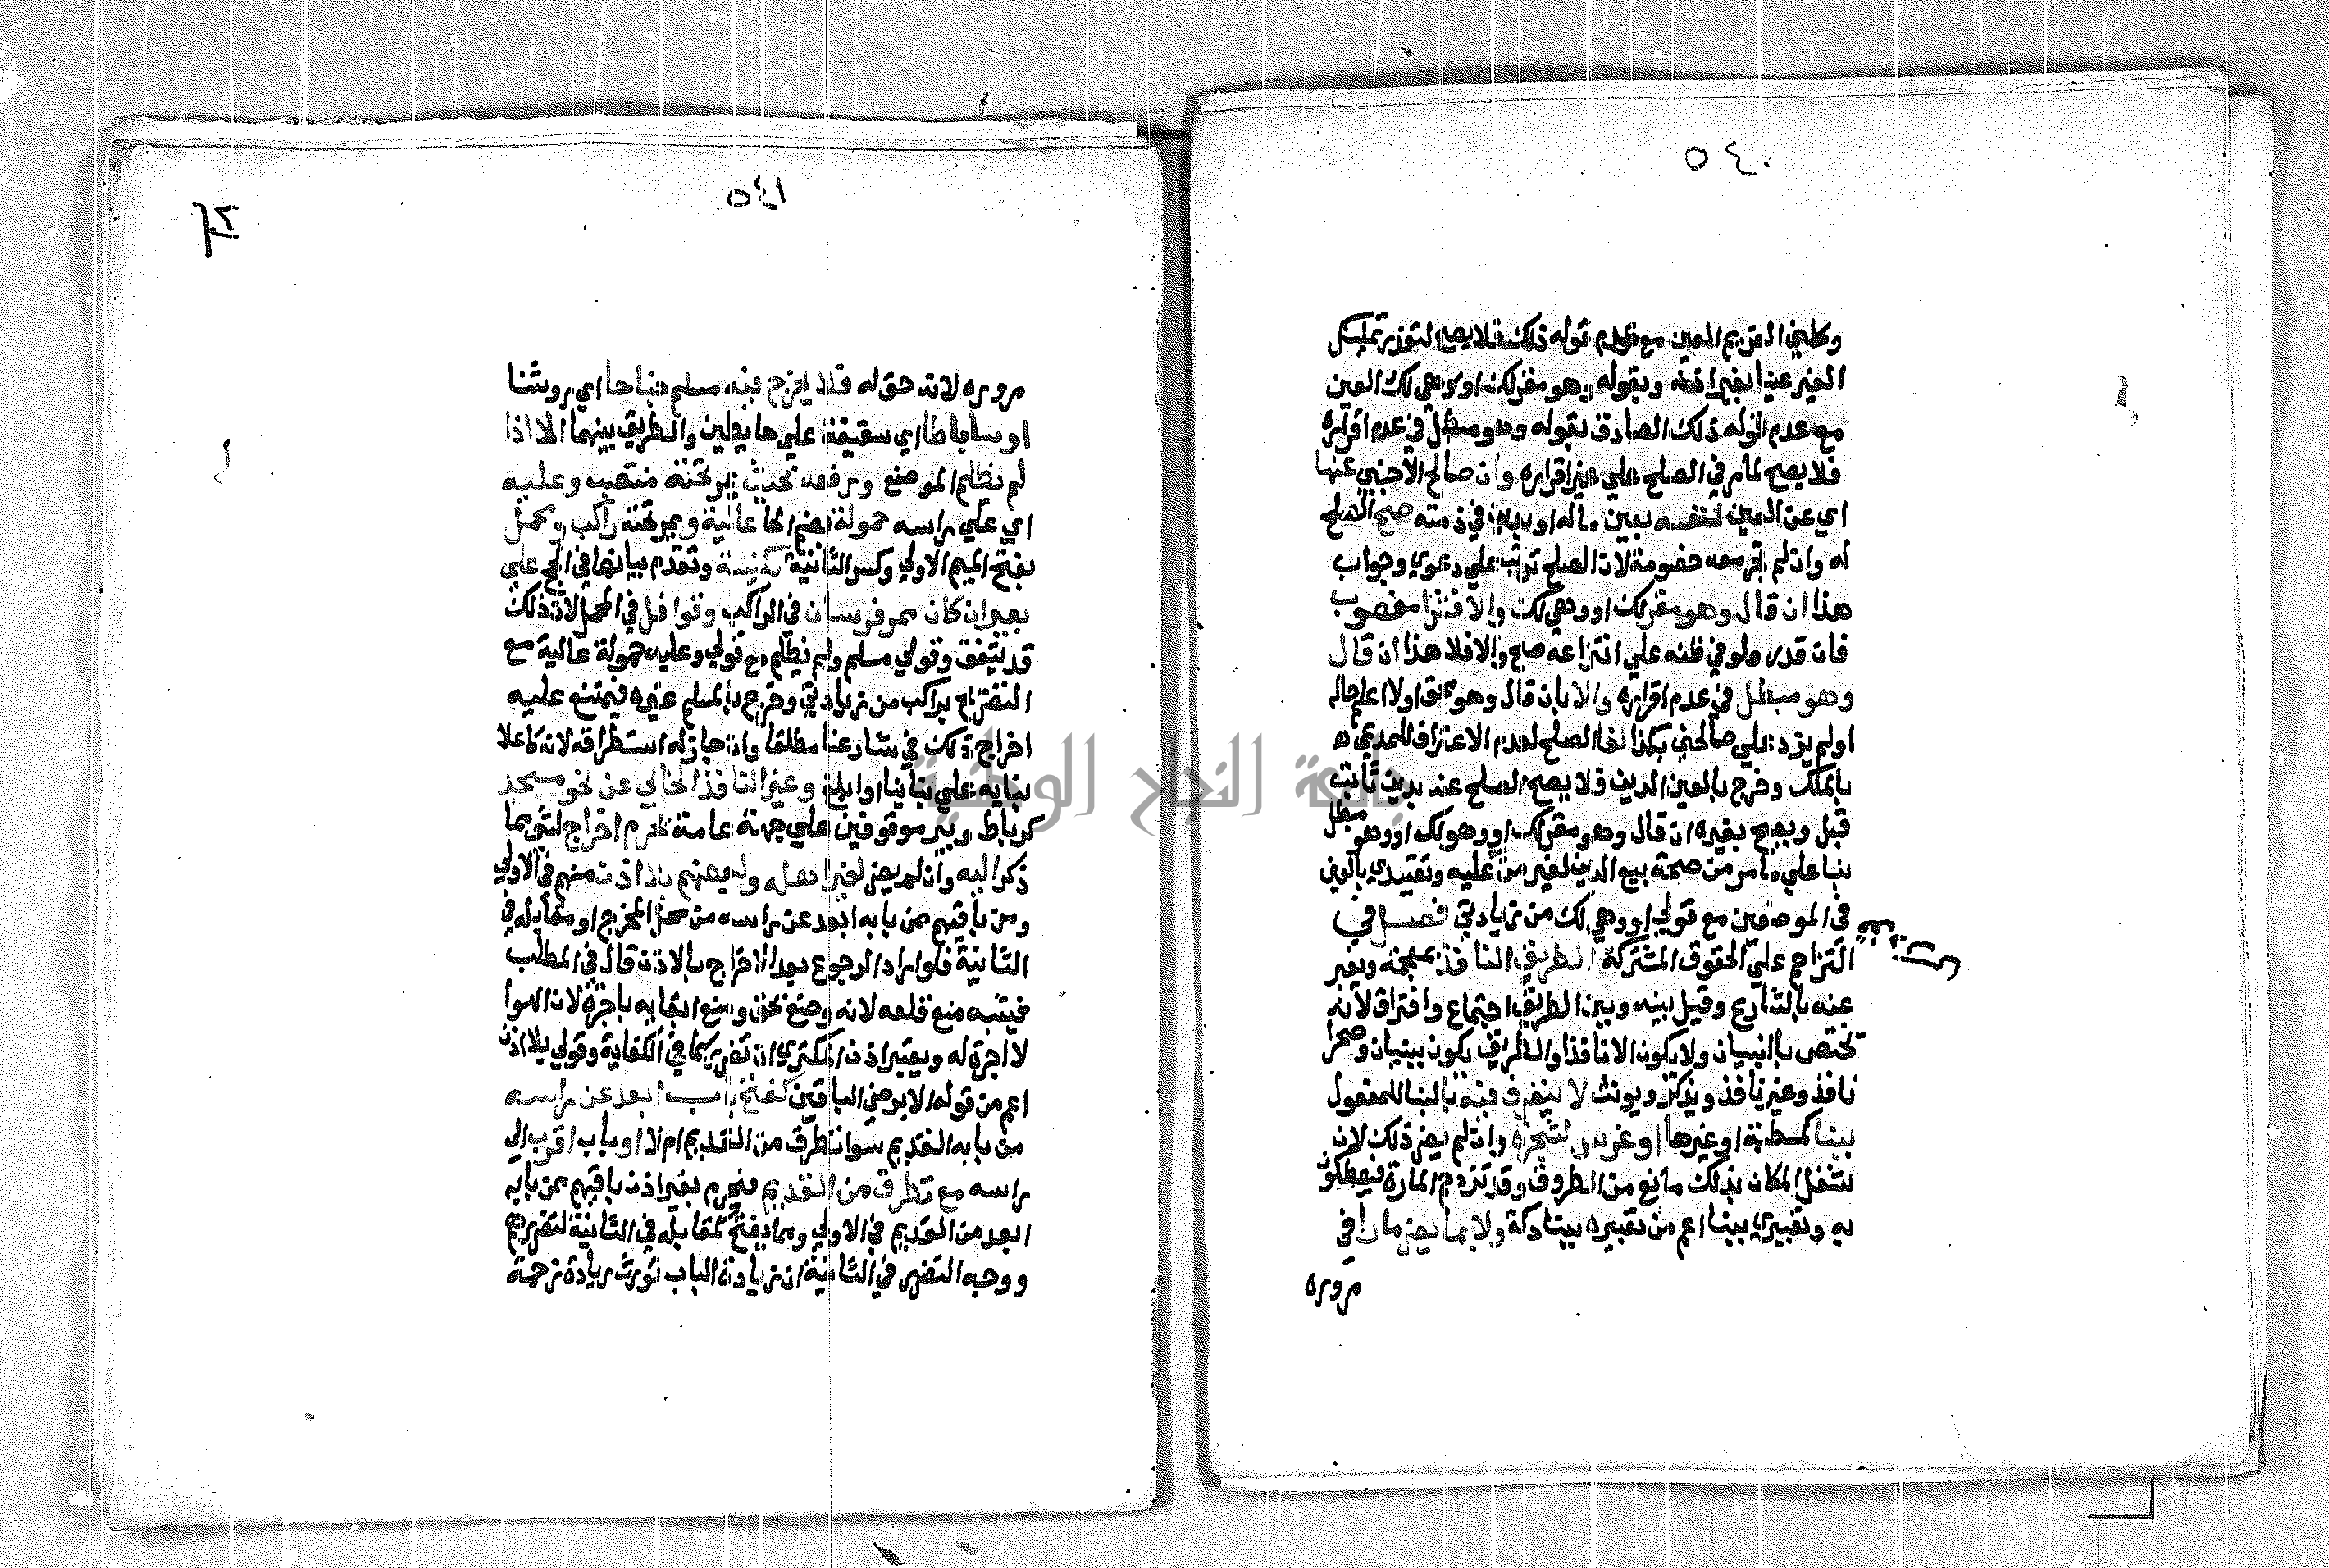 ٥٤٠
وكلني الغريم المعين مع عدم قوله ذلك فلا يصح لتعذر تمليك
الغير عينا بغير اذنه وبقوله وهو مقر لك او وهي لك العين
مع عدم قوله ذلك الصادق بقوله وهو مبطل في عدم اقراره
فلا يصح لما مر في الصلح علي غير اقراره وان صالح الاجنبي عنها
اي عن العين لنفسه بعين ماله او بدين في ذمته صح الصلح
له وان لم تجر معه خصومة لان الصلح ترتب علي دعوي وجواب
هذا ان قال وهو مقر لك او وهي لك والا فشرا مغصوب
فان قدر ولو في ظنه علي انتزاعه صح والا فلا هذا ان قال
وهو مبطل في عدم اقراره والا بان قال وهو محق او لا اعلم حاله
او لم يزد علي صالحني بكذا لغا الصلح لعدم الاعتراف للمدعي
بالملك وخرج بالعين الدين فلا يصح الصلح عنه بدين ثابت
قبل ويصح بغيره ان قال وهو مقر لك او وهو لك او وهو مبطل
بنا علي ما مر من صحة بيع الدين لغير من عليه وتقييدي بالعين
في الموضعين مع قولي او وهي لك من زيادتي فصل في
التزاحم علي الحقوق المشتركة الطريق النافذ بمعجمة ويعبر
عنه بالشارع وقيل بينه وبين الطريق اجتماع وافتراق لانه
تختص بالبنيان ولا يكون الا نافذا والطريق يكون ببنيان وصحرا
نافذ وغير نافذ ويذكر ويونث لا يتصرف فيه بالبنا للمفعول
ببنا كمسطبة او غيرها او غرس لشجرة وان لم يضر ذلك لان
شغل المكان بذلك مانع من الطروق وقد تزدحم المارة فيصطكون
به وتعبيري ببنا اعم من تعبيره ببنا دكة ولا بما يضر مارا في
مروره
٥٤١
مروره لانه حق له فلا يخرج فيه مسلم جناحا اي روشنا
او ساباطا اي سقيفة علي حايطين والطريق بينهما الا اذا
لم يظلم الموضع ورفعه بحيث يمر تحته منتصب وعليه
اي علي راسه حمولة بضم الحا عالية ويمر تحته راكب ومحمل
بفتح الميم الاولي وكسر الثانية كنيسة وتقدم بيانها في الحج علي
بعير ان كان ممر فرسان في الراكب وقوافل في المحمل لان ذلك
قد يتفق وقولي مسلم ولم يظلم مع قولي وعليه حمولة عالية مع
التصريح براكب من زيادتي وخرج بالمسلم غيره فيمتنع عليه
اخراج ذلك في شارعنا مطلقا وان جاز له استطراقه لانه كاعلا
بنايه علي بنائنا او ابلغ وغير النافذ الخالي عن نحو مسجد
كرباط وبير موقوفين علي جهة عامة يحرم اخراج لشي مما
ذكر اليه وان لم يضر لغير اهله ولبعضهم بلا اذن منهم في الاولي
ومن باقيهم ممن بابه ابعد عن راسه من محل المخرج او مقابله في
الثانية فلو اراد الرجوع بعد الاخراج بالاذن قال في المطلب
فيشبه منع قلعه لانه وضع بحق ومنع ابقايه باجرة لان الهوا
لا اجرة له ويعتبر اذن المكتري ان تضرر كما في الكفاية وقولي بلا اذن
اعم من قوله الا برضي الباقين كفتح باب ابعد عن راسه
من بابه القديم سوا تطرق من القديم ام لا او باب اقرب الي
راسه مع تطرق من القديم فيحرم بغير اذن باقيهم ممن بابه
ابعد من القديم في الاولي ومما يفتح كمقابله في الثانية لتضررهم
ووجه التضرر في الثانية ان زيادة الباب تورث زيادة زحمة
جامعة النجاح الوطنية